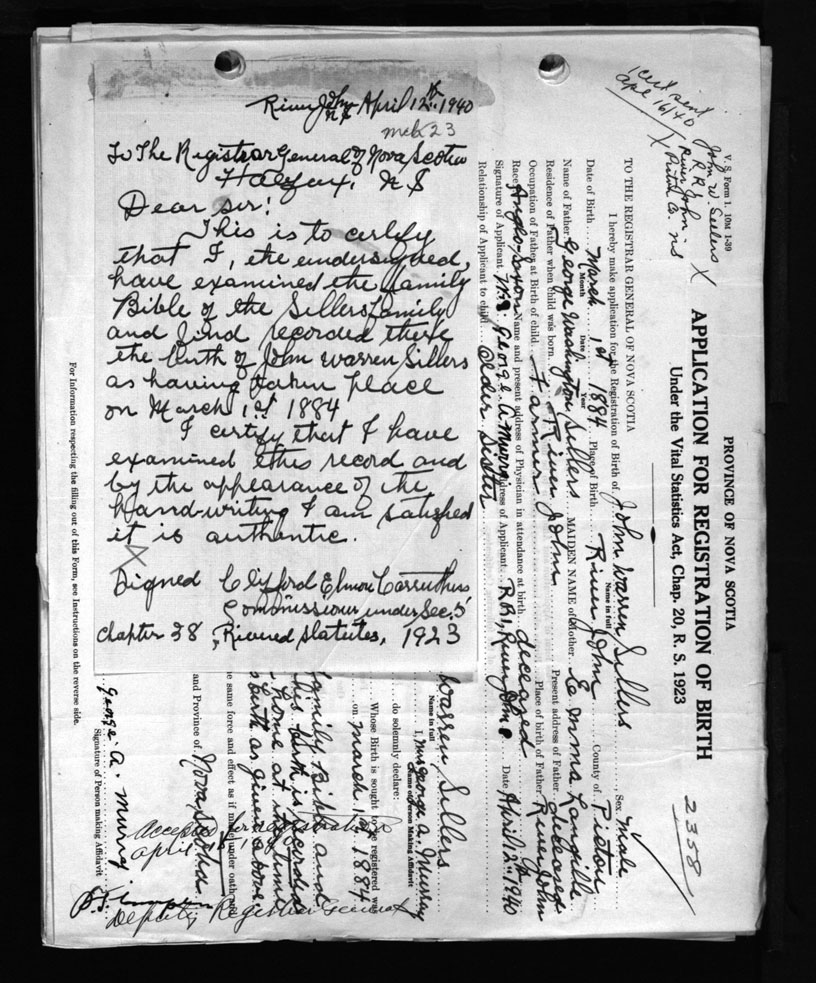 River John
N S April 12th 1940
To The Registrar General of Nova Scotia
Halifax. N S
Dear Sir:
This is to certify
that I, the undersigned,
have examined the family
Bible of the Sillers family
and find recorded there
the birth of John Warren Sillers
as having taken place
on March 1st 1884
I certify that I have
examined this record and
by the appearance of the
hand-writing I am satisfied
it is authentic.
X
Signed Clifford Elmore Carruthers
Commissioner under Sec. 5
Chapter 38, Rivised Statutes, 1923
PROVINCE OF NOVA SCOTIA
APPLICATION FOR REGISTRATION OF BIRTH
Under the Vital Statistics Act, Chap. 20, R. S. 1923
2358
V. S. Form 1. 10M 1-39
John W. Sellers X
R R 1
River John
X Pictou Co. NS
1 cert sent
Apl 16/40
TO THE REGISTRAR GENERAL OF NOVA SCOTIA
I hereby make application for the Registration of Birth of John Warren Sillers Sex Male
Name in full
Date of Birth March 1st 1884 Place of Birth River John County of Pictou
Month Date Year
Name of Father George Washington Sillers MAIDEN NAME of Mother Emma Langille
Residence of Father when child was born River John Present address of Father deceased
Occupation of Father at Birth of child Farmer Place of birth of Father River John
Race Anglo-Saxon Name and present address of Physician in attendance at birth deceased
Signature of Applicant Mrs. George A Murray Address of Applicant R R 1, River John Date April 12th 1940
Relationship of Applicant to child Older Sister
Warren Sillers
Name in full
I, Mrs George A. Murray
Name of Person Making Affidavit
do solemnly declare:
Whose Birth is sought to be registered was
on March 1st 1884
family Bible and
his birth is recorded
home at the time
birth as given above
same force and effect as if made under oath and
and Province of Nova Scotia
Accepted for registration
April
Deputy Registrar General
George A. Murray
Signature of Person making Affidavit
For Information respecting the filling out of this Form, see Instructions on the reverse side.